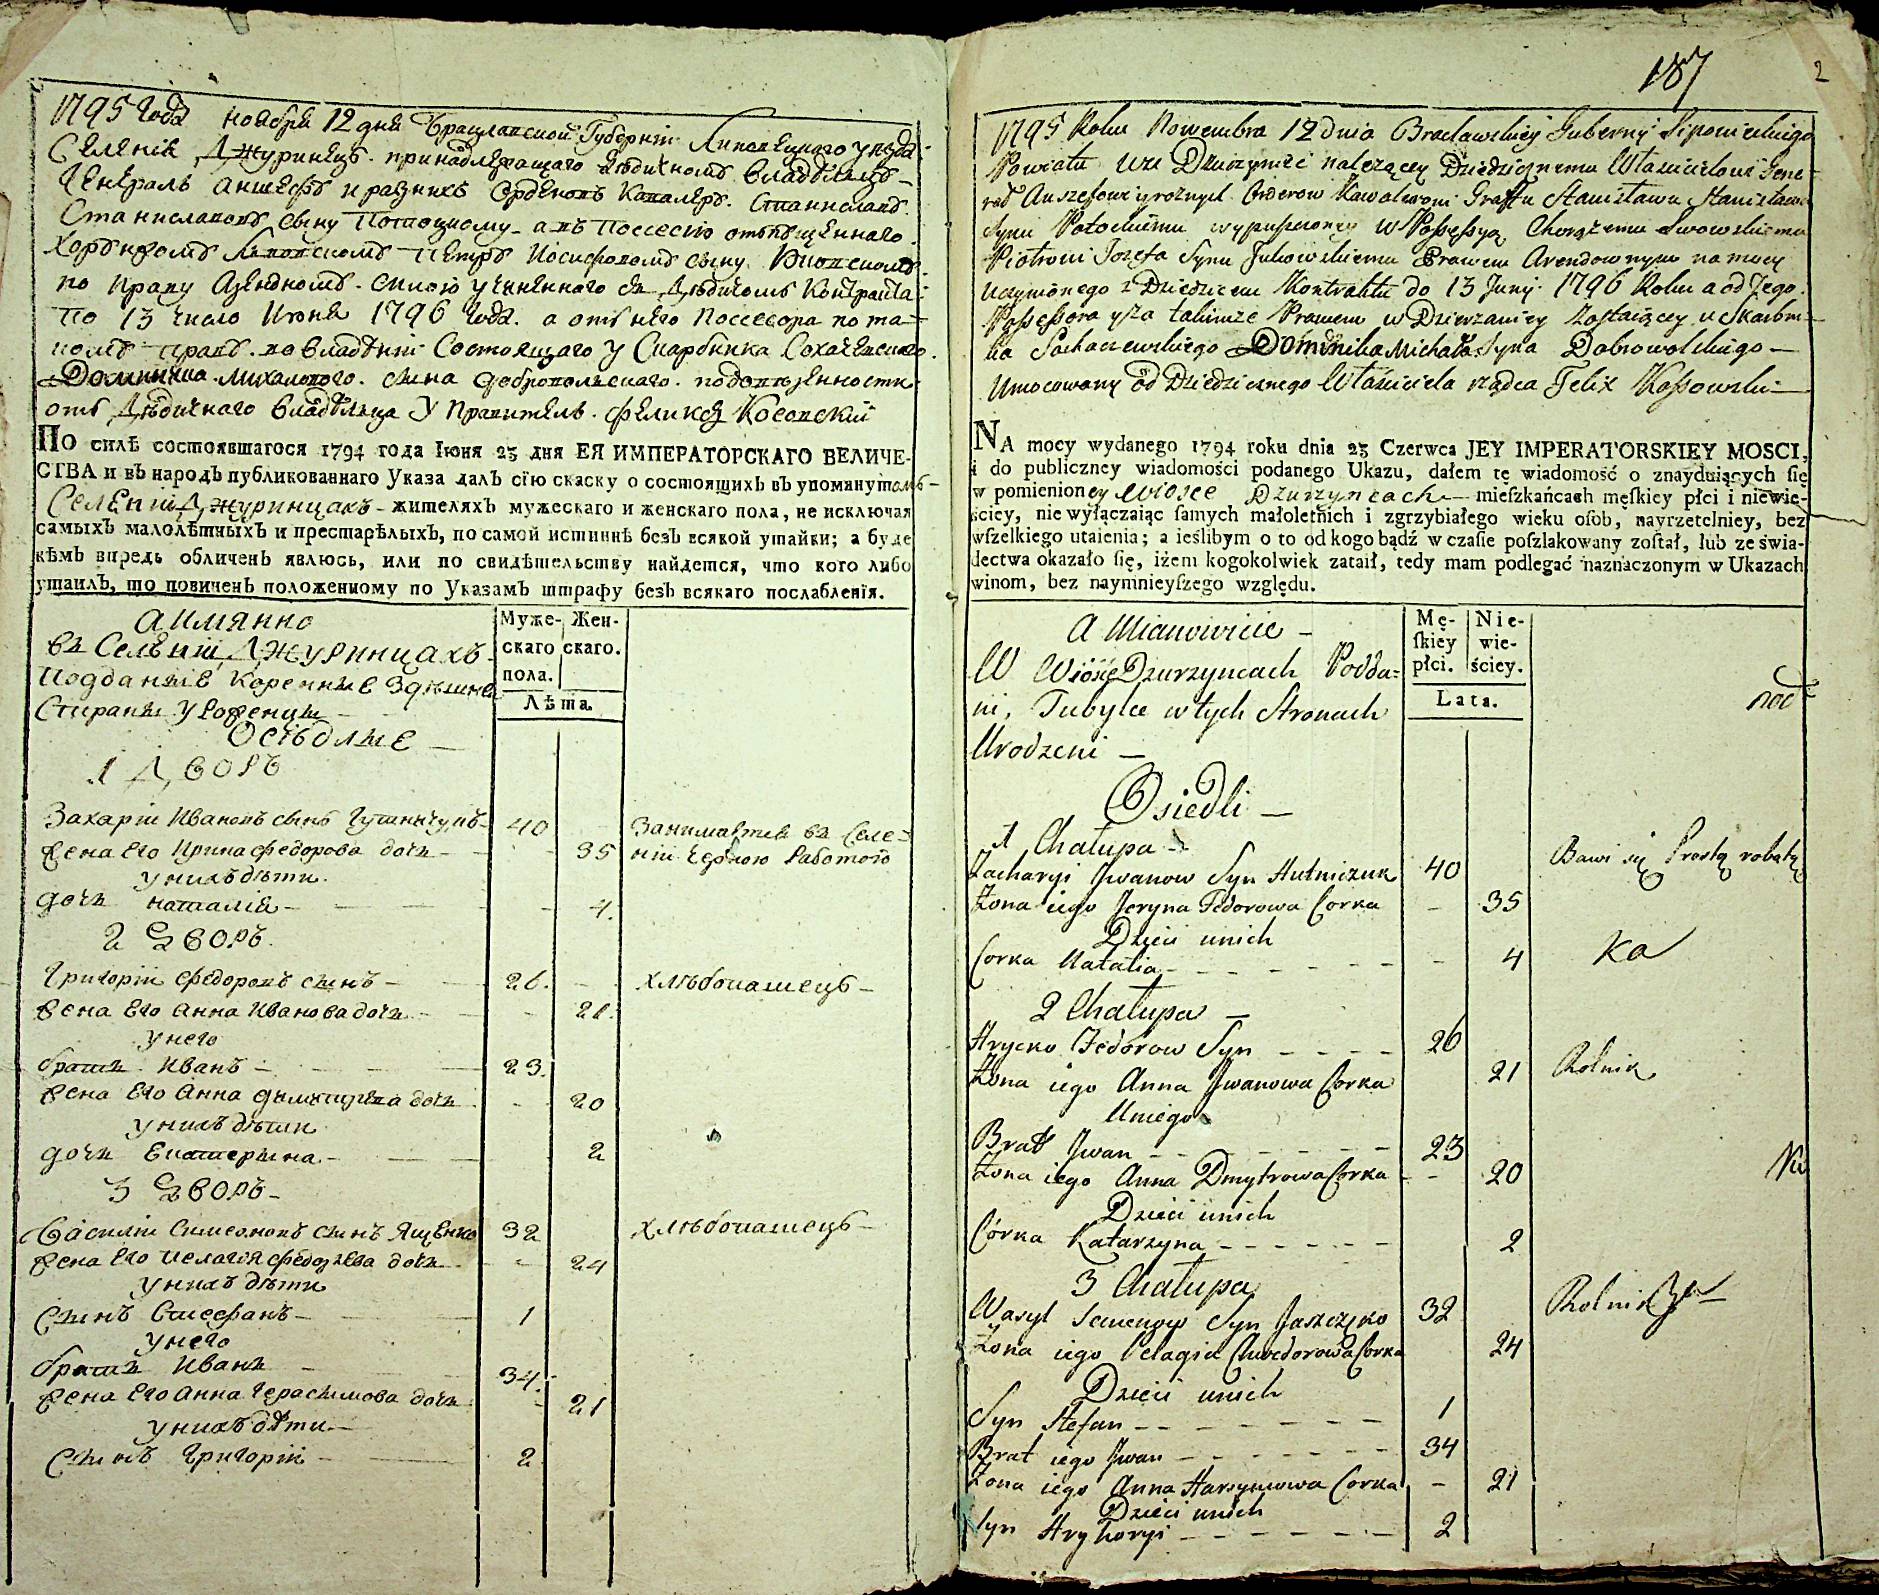 1795 года ноября 12 дня Брацлавской Губернии Липовецкого уезда
Селения Джуринецъ принадлежащаго дедичному владелцу
Генералъ аншефу и разныхъ орденовъ Кавалеру Станиславу
Станиславову сыну Потоцкому а въ поссесию отпущенного
хорунжому Львовскому Петру Иосифовому сыну
по праву арендному силою учиненного съ Дедичомъ Контракта
по 13 число Июня 1796 года а отъ него поссесора по та-
кому праву во владении Состоящаго у Скарбника Сохачевского
Доминика Михалового сына Добровольского по доверенности
отъ Дедичнаго владельца Управитель Феликсъ Косовский
По силѣ состоявшагося 1794 года Iюня 23 дня ЕЯ ИМПЕРАТОРСКАГО ВЕЛИЧЕ-
СТВА и въ народъ публикованнаго Указа далъ сїю скаску о состоящихъ въ упомянутомъ
Селении Джуринцахъ - жителяхъ мужескаго и женскаго пола, не исключая
самыхъ малолѣтныхъ и престарѣлыхъ, по самой истиннѣ безъ всякой утайки; а буде
кѣмъ впредь обличенъ явлюсь, или по свидѣтельству найдется, что кого либо
утаилъ, то повиненъ положенному по Указамъ штрафу безъ всякаго послабленїя.
а имянно
въ Селении Джуринцахъ
Подданние Коренние Здешней
Стираны Уроженцы
Оседлые
1 Дворъ
Муже- Жен-
скаго скаго.
пола.
Лѣта.
Захарий Ивановъ сынъ Гутничукъ 40 Занимается въ Селе-
Жена Его Ирина Федорова дочь 35 нии Черною работою
у нихъ дети
дочь Наталия 4
2 Дворъ
Григорий Федоровъ сынъ 26 хлебопашецъ
Жена Его Анна Иванова дочь 21
у него
братъ Иванъ 23
Жена Его Анна Дмитриева дочь 20
у нихъ дети
дочь Екатерина 2
3 Дворъ
Василий Симеоновъ сынъ Ященко 32 хлебопашецъ
Жена Его Пелагия Федорова дочь 24
у нихъ дети
Сынъ Стефанъ 1
у него
братъ Иванъ 34
Жена Его Анна Герасимова дочь 21
у нихъ дети
Сынъ Григорий 2
187 2
1795 Roku Nowembra 12 Dnia Bracławskiey Guberny Lipowieckiego
Powiatu Wsi Dzurzyniec należącey Dziedzicznemu Właścicielowi Gene-
rał Anszefowi y rożnych Orderow Kawalerowi Graffu Stanisławu Stanisława
Synu Potockiemu wypuszczoney w Possessyą Chorążemu Lwowskiemu
Piotrowi Jozefa Synu Prawem Arendownym na mocy
Uczynionego z Dziedzicem Kontraktu do 13 Juny 1796 Roku a od Jego
Possessora takimże Prawem w Dzierżawiey Zostaiącey u Skarbni-
ka Sochaczewskiego Dominika Michała Syna Dobrowolskiego
Umocowany od Dziedzicznego Właściciela rządca Felix Kossowski
NA mocy wydanego 1794 roku dnia 23 Czerwca JEY IMPERATORSKIEY MOSCI,
i do publiczney wiadomości podanego Ukazu, dałem tę wiadomość o znayduiących się
w pomienioney Wiosce Dzurzyncach mieſzkańcach męſkiey płci i niewie-
ściey, nie wyłączaiąc ſamych małoletnich i zgrzybiałego wieku oſob, nayrzetelniey, bez
wſzelkiego utaienia; a ieślibym o to od kogo bądź w czaſie poſzlakowany zoſtał, lub ze świa-
dectwa okazało ſię, iżem kogokolwiek zataił, tedy mam podlegać naznaczonym w Ukazach
winom, bez naymnieyſzego względu.
A Mianowicie
W Wiosce Dzurzyncach Podda-
ni, Tubylce w tych Stronach
Urodzeni
Osiedli
Mę- Nie-
ſkiey wie-
płci. ściey.
Lata.
1 Chałupa
Zacharyi Jwanow Syn Hutniczuk 40 Bawi się Prostą robotą
Żona iego Jeryna Fedorowa Corka 35
Dzieci unich
Corka Natalia 4
2 Chałupa
Hrycko Fedorow Syn 26
Żona iego Anna Jwanowa Corka 21 Rolnik
Uniego
Brat Jwan 23
Żona iego Anna Dmytrowa Corka 20
Dzieci unich
Córka Katarzyna 2
3 Chałupa
Wasyl Semenow Syn Jaszczęko 32 Rolnik
Żona iego Pelagia Chwedorowa Corka 24
Dzieci unich
Syn Stefan 1
Brat iego Jwan 34
Żona iego Anna Harsymowa Corka 21
Dzieci unich
Syn Hryhoryi 2